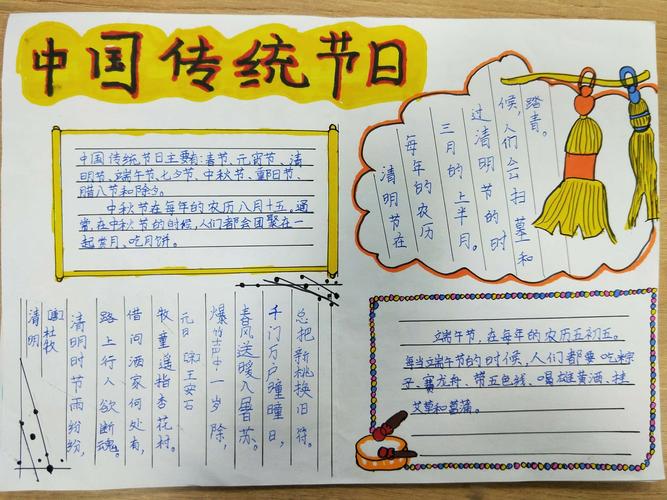 中国传统节日
中国传统节日主要有:春节、元宵节、清
明节、端午节、七夕节、中秋节、重阳节、
腊八节和除夕。
中秋节在每年的农历八月十五。通
常,在中秋节的时候,人们都会团聚在一
起赏月、吃月饼。
清明节在
每年的农历
三月的上半月。
过清明节的时
候,人们会扫墓和
踏青。
清明
[唐]杜牧
清明时节雨纷纷,
路上行人欲断魂。
借问酒家何处有,
牧童遥指杏花村。
元日 [宋]王安石
爆竹声中一岁除,
春风送暖入屠苏。
千门万户曈曈日,
总把新桃换旧符。
端午节,在每年的农历五初五。
每当端午节的时候,人们都要吃粽
子、赛龙舟、带五色线、喝雄黄酒、挂
艾草和菖蒲。